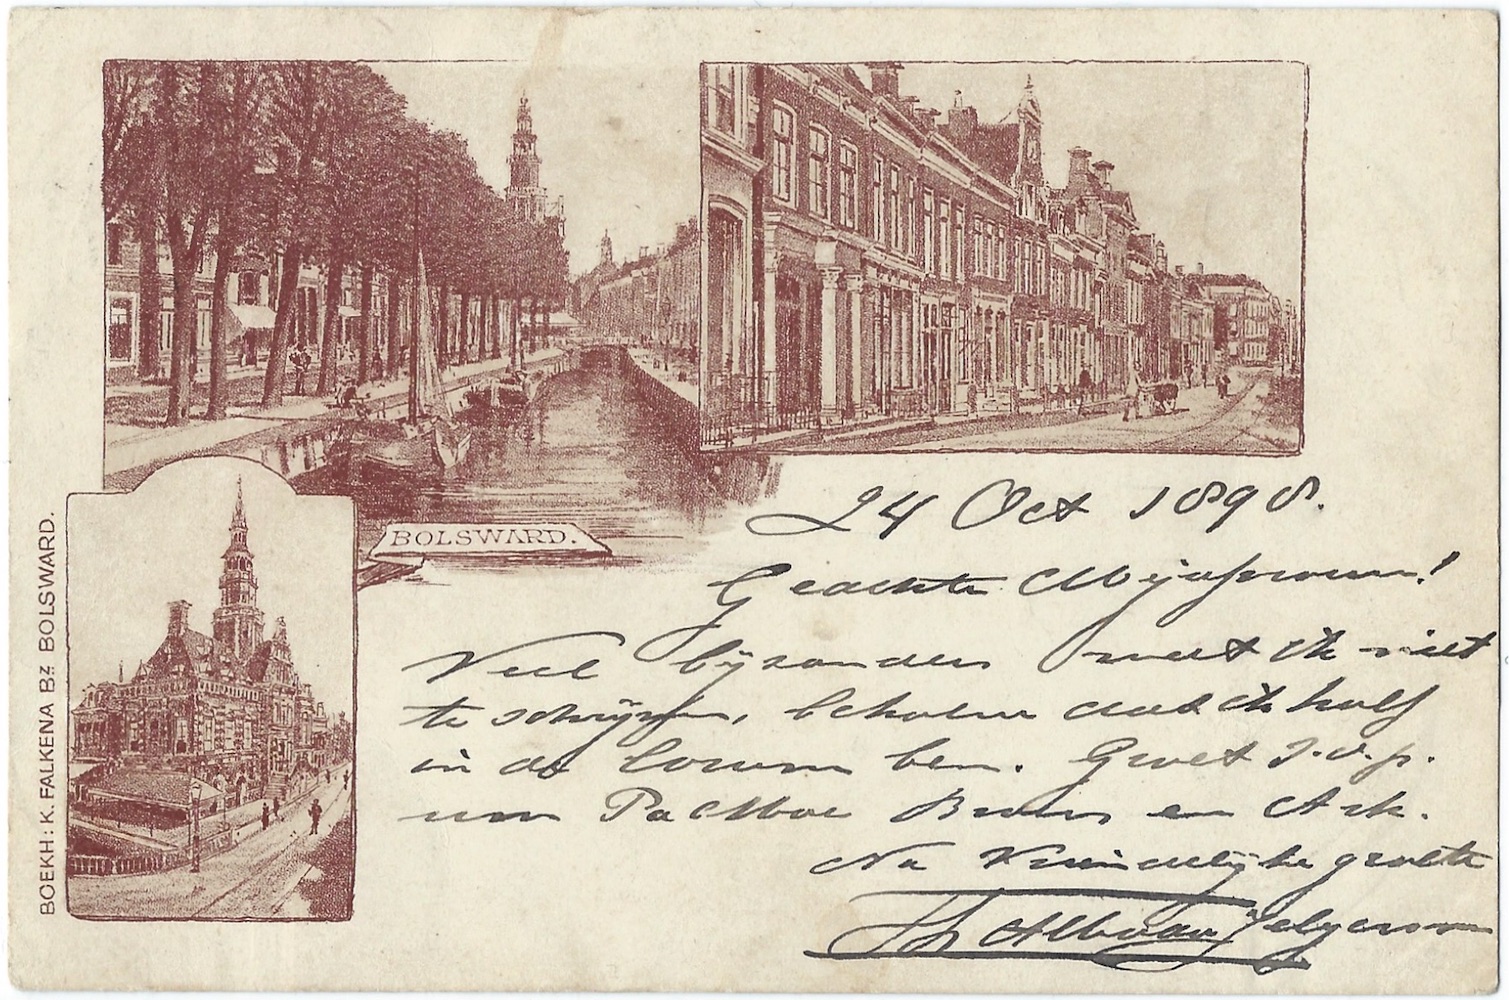 BOLSWARD.
BOEKH: K. FALKENA Bz. BOLSWARD.
24 Oct 1898.
Geachte Mejufvrouw!
Veel bijzonders weet ik niet
te schrijven, behalve dat ik half
in de ben. Groet s.v.p.
van Pa Moe Bruin en
Na Vriendelijke groete
Th